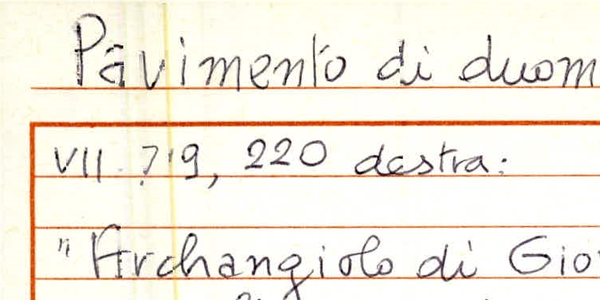 Pavimento di duom
VII. ?19, 220 destra:
"Archangiolo di Gio